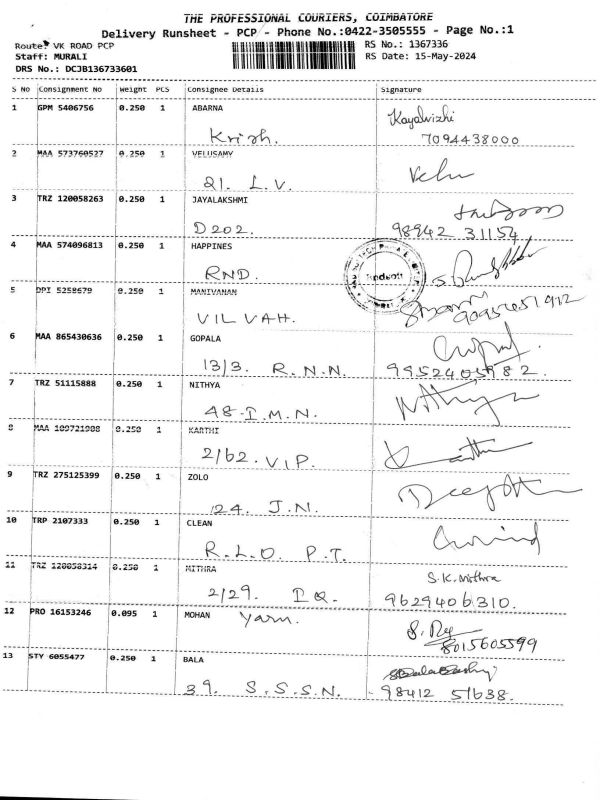 THE PROFESSIONAL COURIERS, COIMBATORE
Delivery Runsheet - PCP - Phone No.:0422-3505555 - Page No.:1
Route: VK ROAD PCP RS No.: 1367336
Staff: MURALI RS Date: 15-May-2024
DRS No.: DCJB136733601
S No Consignment No Weight PCS Consignee Details Signature
1 GPM 5406756 0.250 1 ABARNA Kayalvizhi
Krish. 7094438000
2 MAA 573760527 0.250 1 VELUSAMY
21. L.V. Velu
3 TRZ 120058263 0.250 1 JAYALAKSHMI
D202. 98942 31154
4 MAA 574096813 0.250 1 HAPPINES
RND.
5 DPI 5258679 0.250 1 MANIVANAN
VILVAH. 9095651912
6 MAA 865430636 0.250 1 GOPALA
13/3. R.N.N. 9952405982.
7 TRZ 51115888 0.250 1 NITHYA
48. I.M.N. Nithya
8 MAA 109721908 0.250 1 KARTHI
2/62. V.I.P.
9 TRZ 275125399 0.250 1 ZOLO
124. J.N.
10 TRP 2107333 0.250 1 CLEAN
R.L.O P.T.
11 TRZ 120058314 0.250 1 MITHRA S.K. Mithra
2/29. IQ. 9629406310.
12 PRO 16153246 0.095 1 MOHAN Yarn.
8015605599
13 STY 6055477 0.250 1 BALA
39. S.S.S.N. 98412 51638.